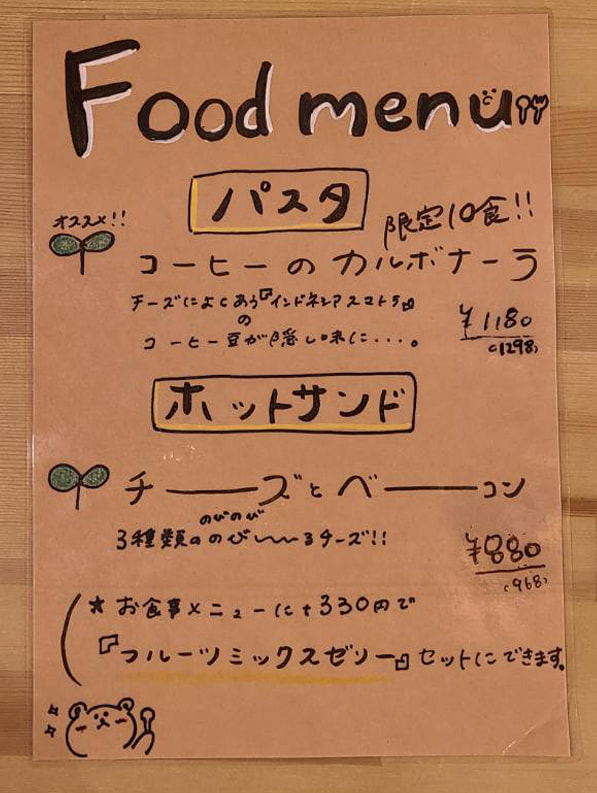 Food menu
パスタ
限定10食!!
オススメ!!
コーヒーのカルボナーラ
チーズによくあう『インドネシアスマトラ』
の
コーヒー豆が隠し味に・・・。
¥1180
(1298)
ホットサンド
チーーズとベーーコン
のびのび
3種類ののび〜〜るチーズ!!
¥880
(968)
★お食事メニューに+330円で
『フルーツミックスゼリー』セットにできます。